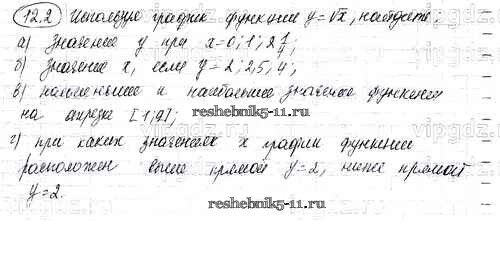 12.2 Используя график функции y=√x, найдите:
а) значение y при x=0; 1; 2 1/4;
vipgdz.ru
б) значение x, если y=2; 2,5; 4;
в) наименьшее и наибольшее значение функции
на отрезке [1;9];
reshebnik5-11.ru
vipgdz.ru
г) при каких значениях x график функции
расположен выше прямой y=2, ниже прямой
y=2.
reshebnik5-11.ru